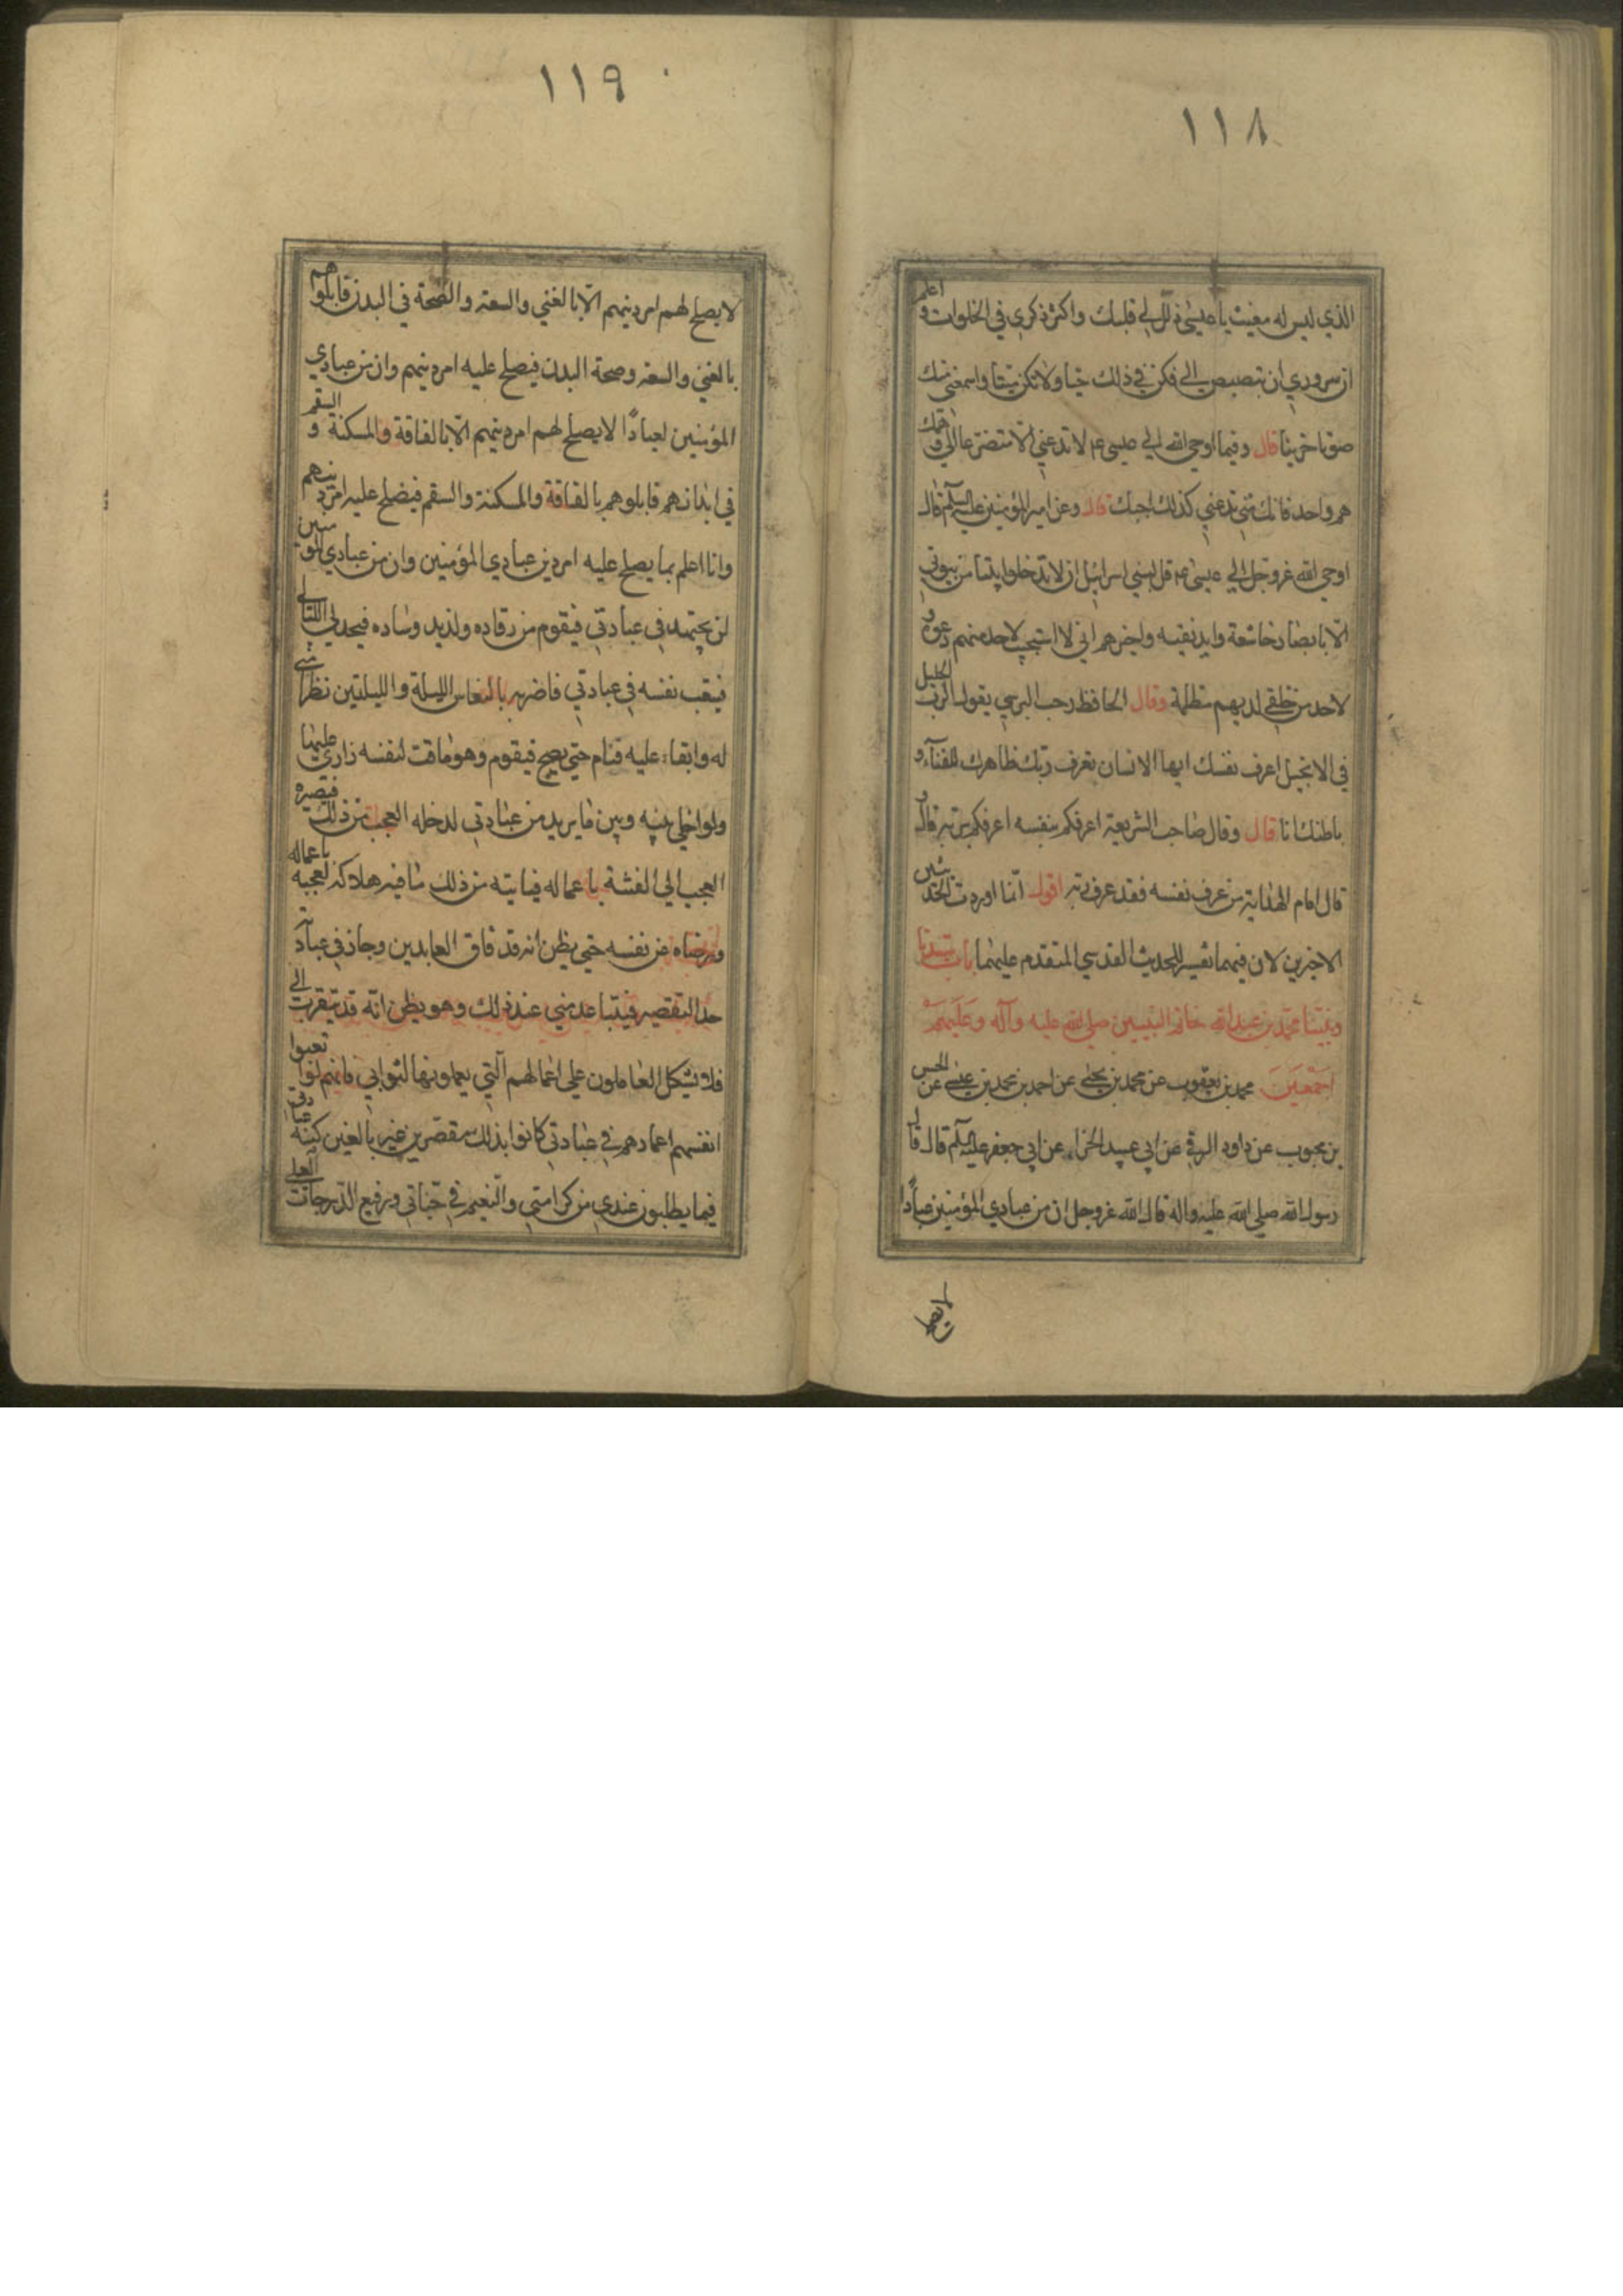 ١١٨
الذي ليس له مغيث يا عيسى ذلل لي قلبك واكثر ذكري في الخلوات واعلم
ان سروري ان تبصبص الي فكن في ذلك حيا ولا تكن ميتا واسمعني منك
صوتا حزينا قال وفيما اوحي الله الي عيسى ع لا تدعني الا متضرعا الي وهمك
هم واحد فانك متي تدعني كذلك اجبك قال وعن امير المؤمنين عليه السلم قال
اوحي الله عز وجل الي عيسى ع قل لبني اسرائيل ان لا تدخلوا بيتا من بيوتي
الا بابصار خاشعة وايد نقيه واخبرهم اني لا استجيب لاحد منهم دعوة و
لاحد من خلقي لديهم مظلمة وقال الحافظ رجب البرسي يقول الرب الجليل
في الانجيل اعرف نفسك ايها الانسان تعرف ربك ظاهرك للفنآء و
باطنك انا قال وقال صاحب الشريعة اعرفكم بنفسه اعرفكم بربه قال و
قال امام الهداية من عرف نفسه فقد عرف ربه اقول انما اوردت الحديثين
الاخيرين لان فيهما تفسير للحديث القدسي المتقدم عليهما باب سيدنا
ونبينا محمد بن عبد الله خاتم النبيين صلي الله عليه وآله وعليهم
اجمعين محمد بن يعقوب عن محمد بن يحيى عن احمد بن محمد بن عيسى عن الحسن
بن محبوب عن داود الرقي عن ابي عبيد الحذاء عن ابي جعفر عليه السلم قال قال
رسول الله صلي الله عليه واله قال الله عز وجل ان من عبادي المؤمنين عبادًا
١١٩
لا يصلح لهم امر دينهم الا بالغني والسعة والصحة في البدن فابلوهم
بالغني والسعة وصحة البدن فيصلح عليه امر دينهم وان من عبادي
المؤمنين لعبادًا لا يصلح لهم امر دينهم الا بالفاقة والمسكنة والسقم
في ابدانهم فابلوهم بالفاقة والمسكنة والسقم فيصلح عليه امر دينهم
وانا اعلم بما يصلح عليه امر دين عبادي المؤمنين وان من عبادي المؤمنين
لمن يجتهد في عبادتي فيقوم من رقاده ولذيد وساده فيجد لي الليالي
فيتعب نفسه في عبادتي فاضربه بالنعاس الليلة والليلتين نظرا مني
له وابقاء عليه فنام حتي يصبح فيقوم وهو ماقت لنفسه زاري عليها
ولو اخلي بينه وبين ما يريد من عبادتي لدخله العجب من ذلك فيصيره
العجب الي الفتنة باعماله فياتيه من ذلك ما فيه هلاكه لعجبه باعماله
ورضاه عن نفسه حتي يظن انه قد فاق العابدين وجاز في عبادته
حد التقصير فيتباعد مني عند ذلك وهو يظن انه قد يتقرب الي
فلا يتكل العاملون علي اعمالهم التي يعملونها لثوابي فانهم لو تعبوا
انفسهم اعمارهم في عبادتي كانوا بذلك مقصرين غير بالغين كنه عبادتي
فيما يطلبون عندي من كرامتي والنعيم في جناتي ورفيع الدرجات العلي